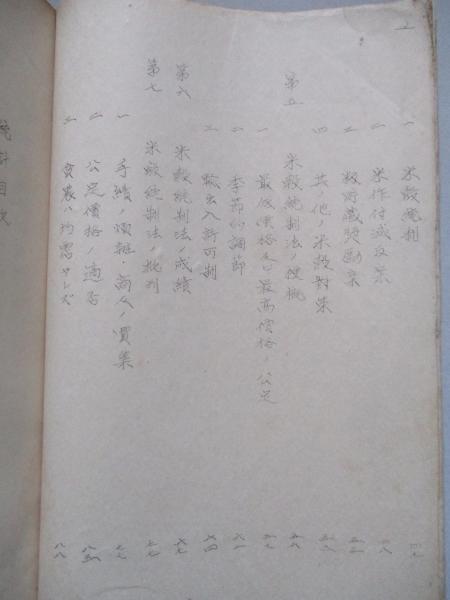 一 米穀統制 四七
二 米作付減反案 四八
三 籾貯蔵奨励案
四 其ノ他ノ米穀対策
第五 米穀統制法ノ梗概 五六
一 最低価格及ビ最高価格ノ公定 五七
二 季節的調節 六一
三 輸出入許可制 六四
第六 米穀統制法ノ成績 六七
第七 米穀統制法ノ批判 七七
一 手続ノ煩雑・商人ノ買集 七七
二 公定価格ノ適否 八五
三 貧農ハ均霑セズ 八八
統計目次